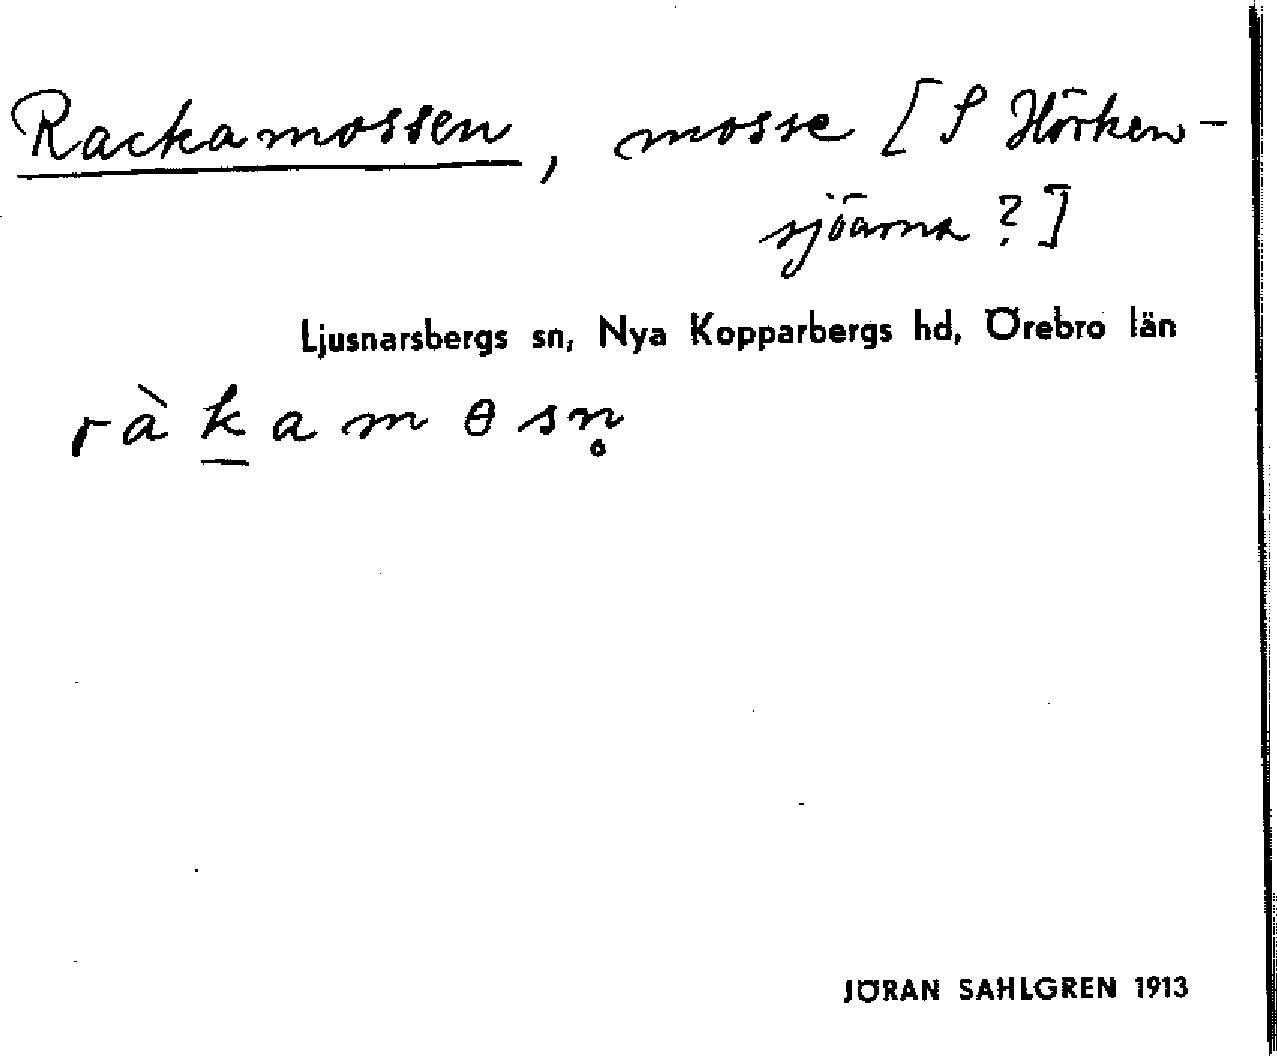 Rackamossen, mosse [S Hörken-
sjöarna?]
Ljusnarsbergs sn, Nya Kopparbergs hd, Örebro län
ràk̲amɵsn̥
JÖRAN SAHLGREN 1913